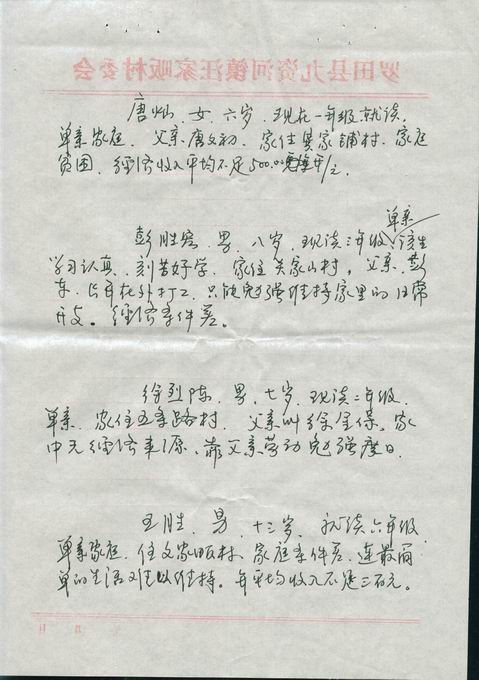 罗田县九资河镇汪家畈村委会
唐灿、女、六岁、现在一年级就读、
单亲家庭、父亲唐文初、家住吴家铺村、家庭
贫困、经济收入平均不足500.00 /元.
单亲
彭胜客、男、八岁、现读二年级、该生
学习认真、刻苦好学、家住关家山村、父亲彭
车、长年在外打工、只能勉强维持家里的日常
开支。经济条件差。
徐烈陈、男、七岁、现读二年级、
单亲、家住五条路村、父亲叫徐金保、家
中无经济来源、靠父亲劳动勉强度日.
王胜、男、十三岁、就读六年级、
单亲家庭、住文家畈村、家庭条件差、连最简
单的生活难以维持、年平均收入不足三百元。
月 日